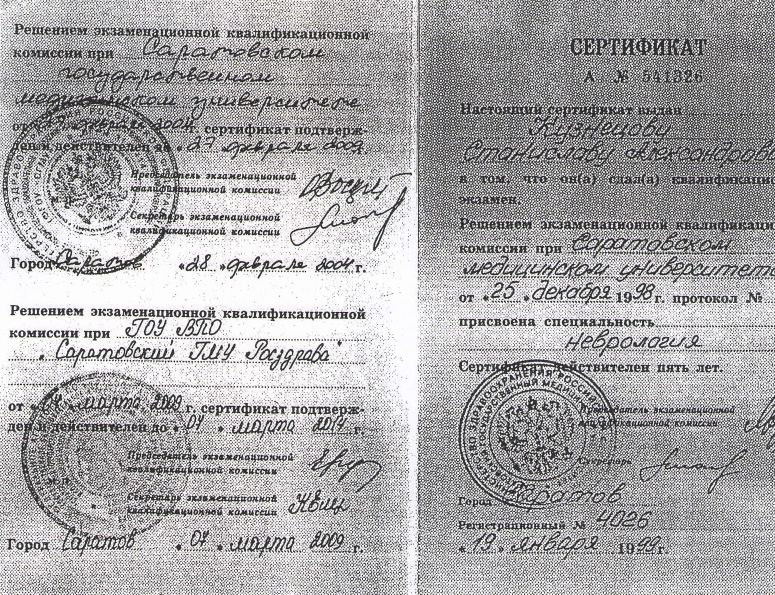 Решением экзаменационной квалификационной
комиссии при Саратовском
государственном
медицинском университете
от февраля 2004 г. сертификат подтверж-
ден и действителен до «27» февраля 2009 г.
Председатель экзаменационной
квалификационной комиссии
Секретарь экзаменационной
квалификационной комиссии
М.П.
Город Саратов «28» февраля 2004 г.
Решением экзаменационной квалификационной
комиссии при ГОУ ВПО
"Саратовский ГМУ Росздрава"
от «04» марта 2009 г. сертификат подтверж-
ден и действителен до «04» марта 2014 г.
Председатель экзаменационной
квалификационной комиссии
М.П.
Секретарь экзаменационной
квалификационной комиссии
Город Саратов «04» марта 2009 г.
СЕРТИФИКАТ
А № 541326
Настоящий сертификат выдан
Кузнецову
Станиславу Александрови
в том, что он(а) сдал(а) квалификацио
экзамен.
Решением экзаменационной квалификации
комиссии при Саратовском
медицинском университете
от «25» декабря 1998 г. протокол №
присвоена специальность
неврология
Сертификат действителен пять лет.
Председатель экзаменационной
квалификационной комиссии
Секретарь
Город Саратов
Регистрационный № 4026
«19» января 1999 г.